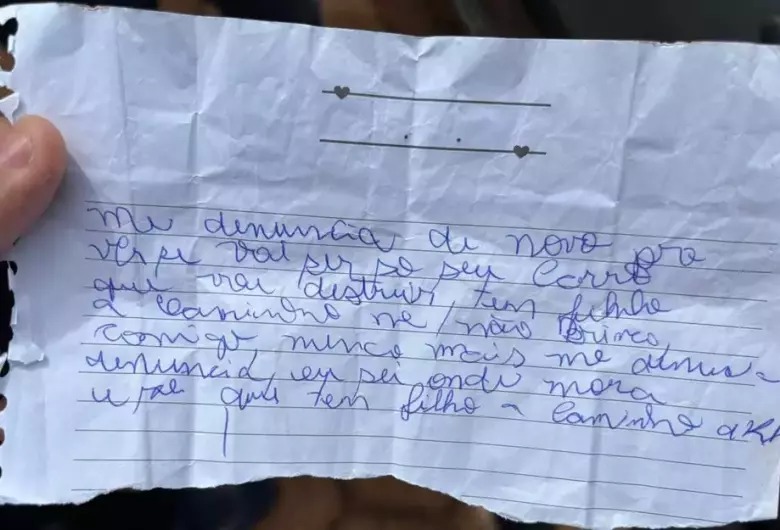 me denuncia de novo pra
ver se vai ser so seu carro
que vai destruir, tem filho
a caminho né, não brinca
comigo nunca mais me denun-
denuncia, eu sei onde mora
que tem filho a caminho